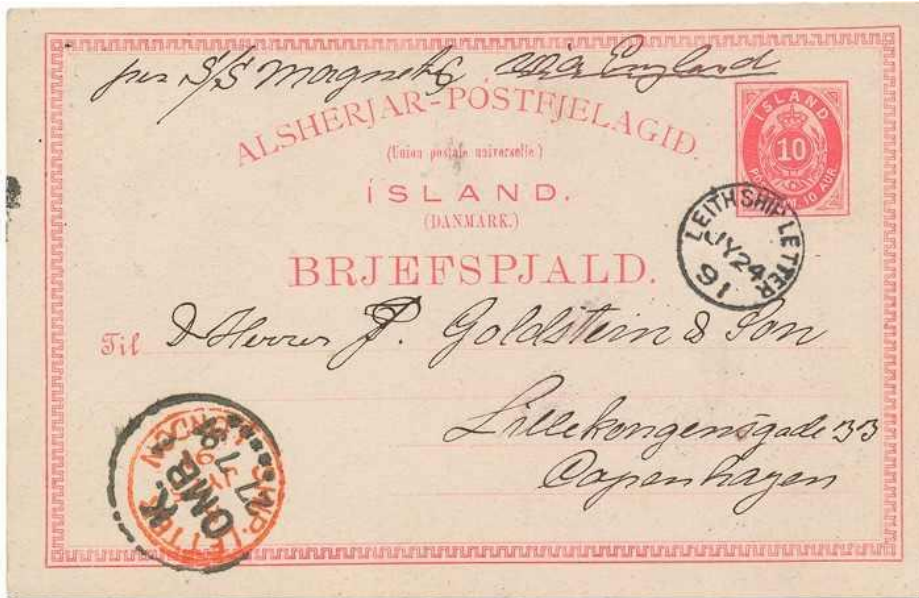 per S/S Magnetic via England
ALSHERJAR-PÓSTFJELAGIÐ.
(Union postale universelle.)
ÍSLAND.
(DANMARK.)
BRJEFSPJALD.
ÍSLAND
10
10 AUR
LEITH SHIP LETTER
JY 24
91
Til D Herrer P. Goldstein & Son
Lillekongensgade 33
Copenhagen
LONDON
SHIP-LETTER
K.
OMB